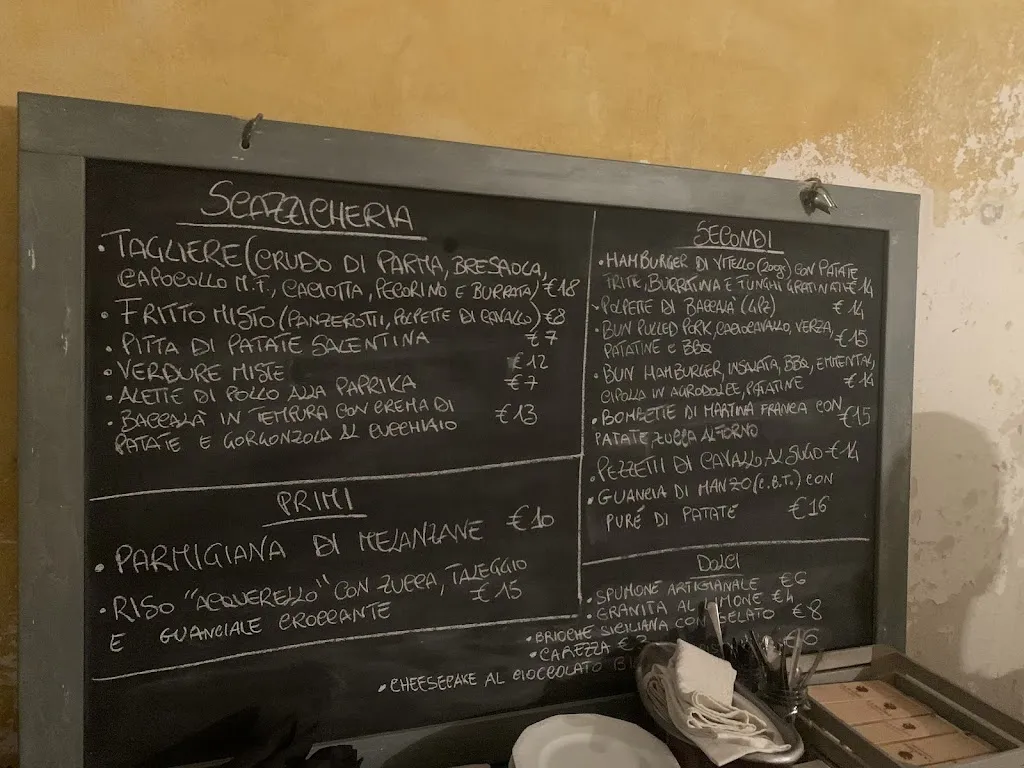 SCAZZICHERIA
• TAGLIERE (CRUDO DI PARMA, BRESAOLA,
CAPOCOLLO M.F., CACIOTTA, PECORINO E BURRATA) €18
• FRITTO MISTO (PANZEROTTI, POLPETTE DI CAVALLO) €8
• PITTA DI PATATE SALENTINA €7
• VERDURE MISTE €12
• ALETTE DI POLLO ALLA PAPRIKA €7
• BACCALÀ IN TEMPURA CON CREMA DI
PATATE E GORGONZOLA AL CUCCHIAIO €13
PRIMI
• PARMIGIANA DI MELANZANE €10
• RISO "ACQUERELLO" CON ZUCCA, TALEGGIO
E GUANCIALE CROCCANTE €15
SECONDI
• HAMBURGER DI VITELLO (200gr) CON PATATE
FRITTE, BURRATINA E FUNGHI GRATINATI €14
• POLPETTE DI BACCALÀ (4PZ) € 14
• BUN PULLED PORK, CACIOCAVALLO, VERZA,
PATATINE E BBQ €15
• BUN HAMBURGER, INSALATA, BBQ, EMMENTAL,
CIPOLLA IN AGRODOLCE, PATATINE €14
• BOMBETTE DI MARTINA FRANCA CON
PATATE ZUCCA AL FORNO €15
• PEZZETTI DI CAVALLO AL SUGO €14
• GUANCIA DI MANZO (C.B.T.) CON
PURÉ DI PATATE €16
DOLCI
• SPUMONE ARTIGIANALE €6
• GRANITA AL LIMONE €4
• BRIOCHE SICILIANA CON GELATO €8
• CAREZZA €
• CHEESECAKE AL CIOCCOLATO €6